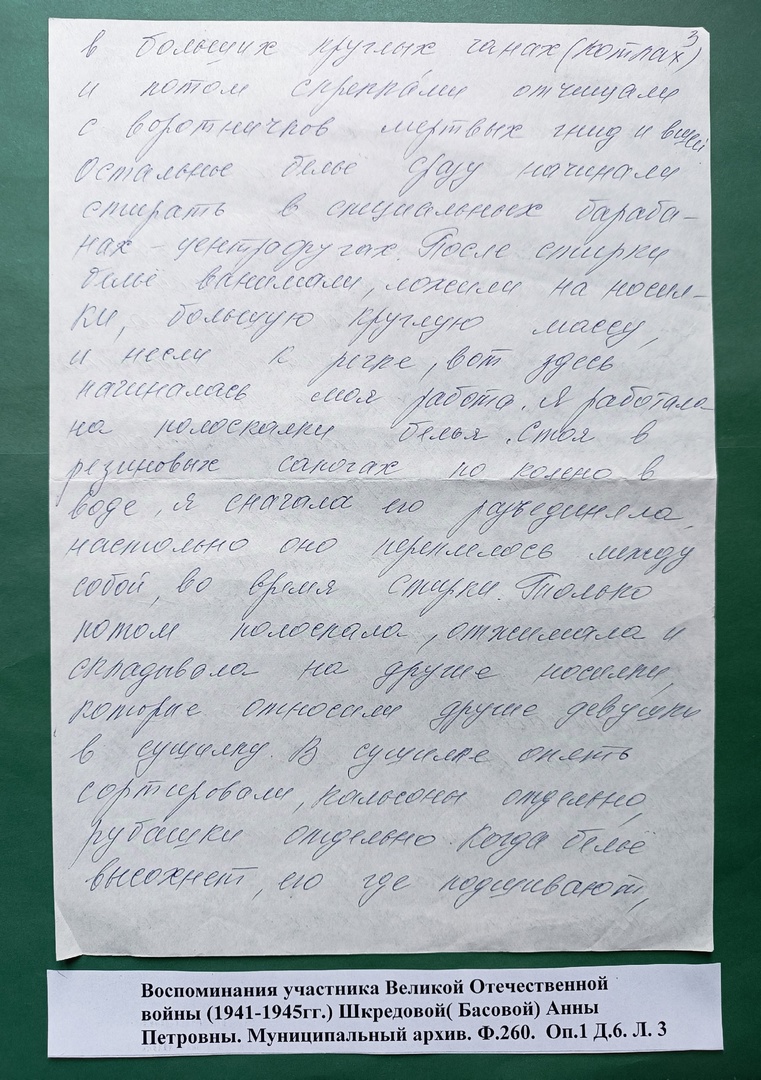 3
в больших круглых чанах (котлах)
и потом скребками отчищали
с воротничков мертвых гнид и вшей.
Остальное бельё сразу начинали
стирать в специальных бараба-
нах - центрофугах. После стирки
бельё вынимали, ложили на носил-
ки, большую круглую массу,
и несли к речке, вот здесь
начиналась моя работа. Я работала
на полоскалки белья. Стоя в
резиновых сапогах по колено в
воде, я сначала его разъединяла,
настолько оно переплелось между
собой, во время стирки. Только
потом полоскала, отжимала и
складывала на другие носилки,
которые относили другие девушки
в сушилку. В сушилке опять
сортировали, кальсоны отдельно,
рубашки отдельно. Когда бельё
высохнет, его где подшивают,
Воспоминания участника Великой Отечественной
войны (1941-1945гг.) Шкредовой( Басовой) Анны
Петровны. Муниципальный архив. Ф.260. Оп.1 Д.6. Л. 3